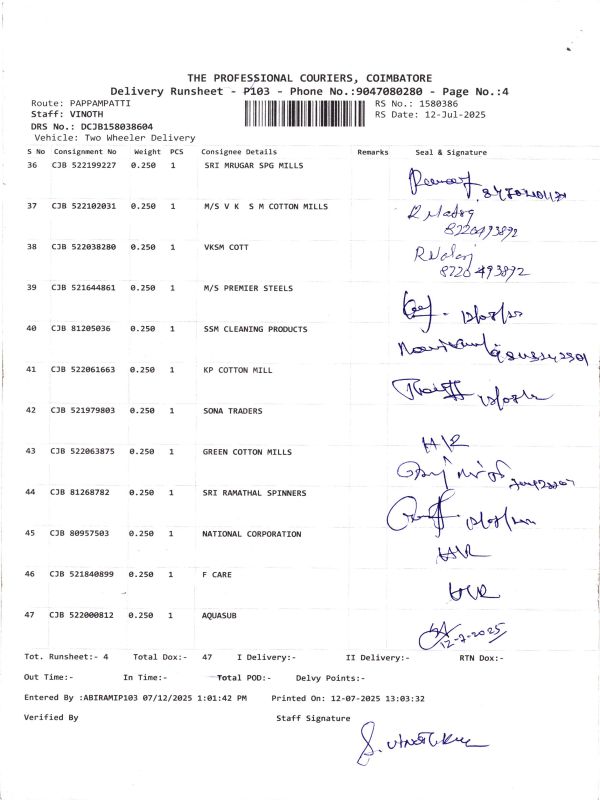 THE PROFESSIONAL COURIERS, COIMBATORE
Delivery Runsheet - P103 - Phone No.:9047080280 - Page No.:4
Route: PAPPAMPATTI RS No.: 1580386
Staff: VINOTH RS Date: 12-Jul-2025
DRS No.: DCJB158038604
Vehicle: Two Wheeler Delivery
S No Consignment No Weight PCS Consignee Details Remarks Seal & Signature
36 CJB 522199227 0.250 1 SRI MRUGAR SPG MILLS
37 CJB 522102031 0.250 1 M/S V K S M COTTON MILLS
8220493892
38 CJB 522038280 0.250 1 VKSM COTT
8220493892
39 CJB 521644861 0.250 1 M/S PREMIER STEELS
40 CJB 81205036 0.250 1 SSM CLEANING PRODUCTS
41 CJB 522061663 0.250 1 KP COTTON MILL
42 CJB 521979803 0.250 1 SONA TRADERS
43 CJB 522063875 0.250 1 GREEN COTTON MILLS
44 CJB 81268782 0.250 1 SRI RAMATHAL SPINNERS
45 CJB 80957503 0.250 1 NATIONAL CORPORATION
46 CJB 521840899 0.250 1 F CARE
47 CJB 522000812 0.250 1 AQUASUB
12-7-2025
Tot. Runsheet:- 4 Total Dox:- 47 I Delivery:- II Delivery:- RTN Dox:-
Out Time:- In Time:- Total POD:- Delvy Points:-
Entered By :ABIRAMIP103 07/12/2025 1:01:42 PM Printed On: 12-07-2025 13:03:32
Verified By Staff Signature